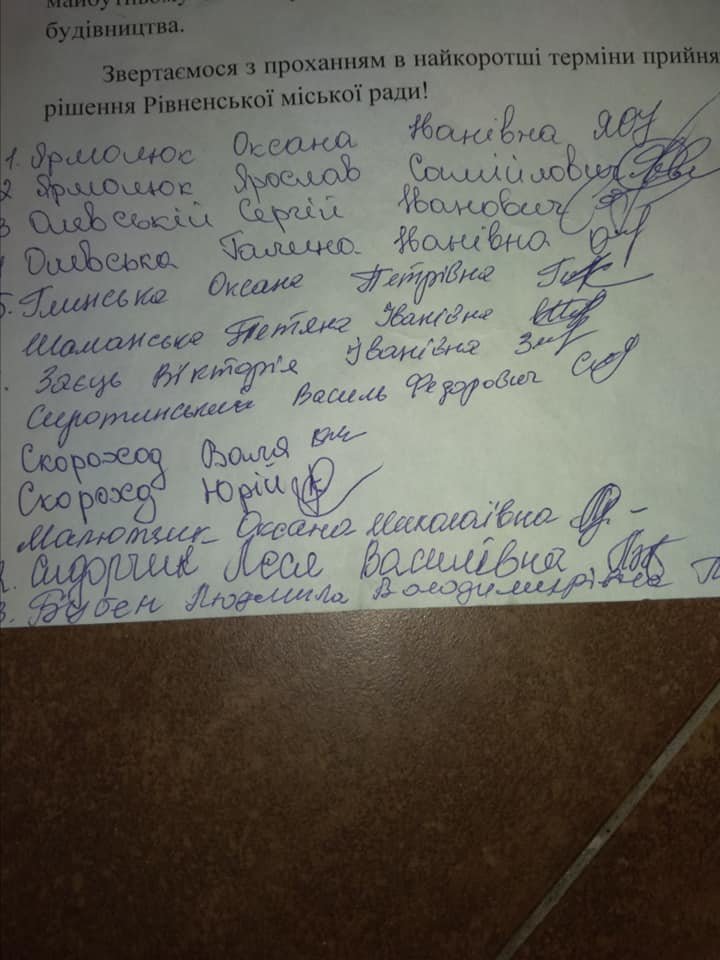 будівництва.
Звертаємося з проханням в найкоротші терміни прийня
рішення Рівненської міської ради!
1. Ярмолюк Оксана Іванівна ЯОУ
2 Ярмолюк Ярослав Самійлович
3 Олевській Сергій Іванович
Олевська Галина Іванівна
5. Глинська Оксана Петрівна
Шаманська Тетяна Іванівна
Заєць Вікторія Іванівна
Сиротинський Василь Федорович
Скороход Валя
Скороход Юрій
Малютчик Оксана Миколаївна
Сидорчик Леся Василівна
Бубен Людмила Володимирівна